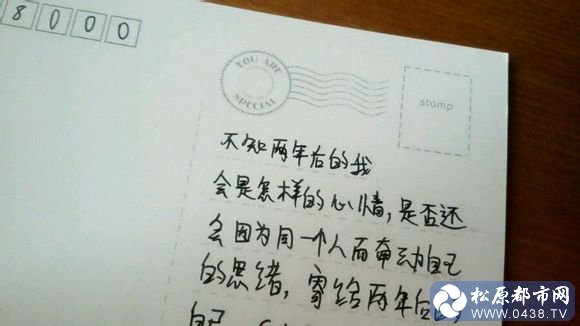 8000
YOU ARE
SPECIAL
stamp
不知两年后的我
会是怎样的心情,是否还
会因为同一个人而牵动自己
的思绪,寄给两年后的
自己
松原都市网
www.0438.TV